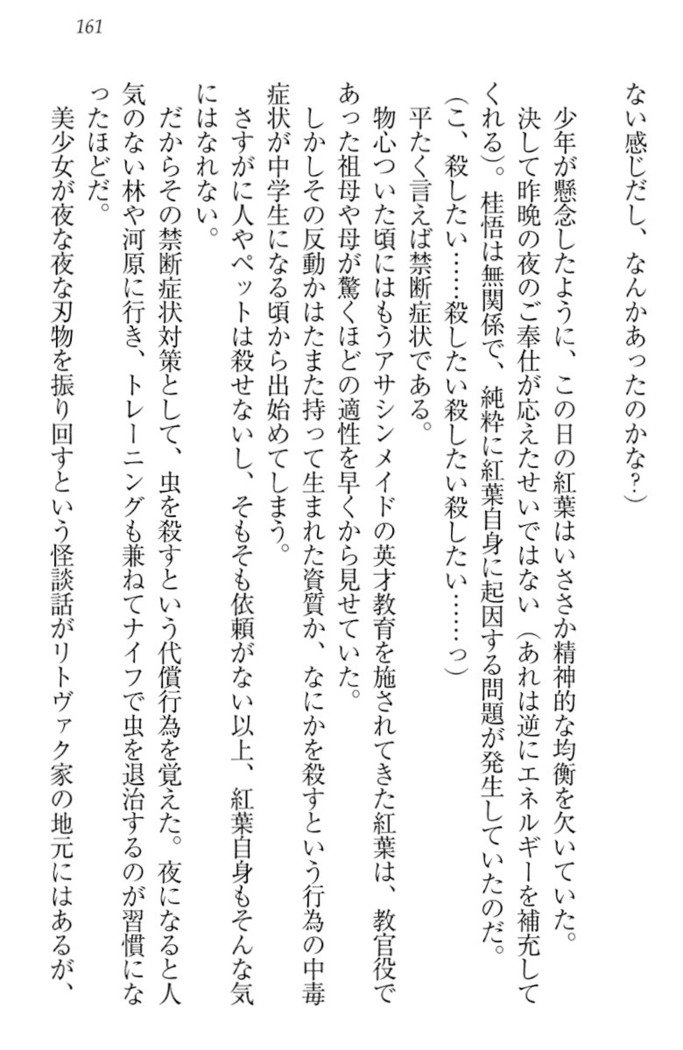 161
ない感じだし、なんかあったのかな？）
少年が懸念したように、この日の紅葉はいささか精神的な均衡を欠いていた。
決して昨晩の夜のご奉仕が応えたせいではない（あれは逆にエネルギーを補充して
くれる）。桂悟は無関係で、純粋に紅葉自身に起因する問題が発生していたのだ。
（こ、殺したい……殺したい殺したい殺したい……っ）
平たく言えば禁断症状である。
物心ついた頃にはもうアサシンメイドの英才教育を施されてきた紅葉は、教官役で
あった祖母や母が驚くほどの適性を早くから見せていた。
しかしその反動かはたまた持って生まれた資質か、なにかを殺すという行為の中毒
症状が中学生になる頃から出始めてしまう。
さすがに人やペットは殺せないし、そもそも依頼がない以上、紅葉自身もそんな気
にはなれない。
だからその禁断症状対策として、虫を殺すという代償行為を覚えた。夜になると人
気のない林や河原に行き、トレーニングも兼ねてナイフで虫を退治するのが習慣にな
ったほどだ。
美少女が夜な夜な刃物を振り回すという怪談話がリトヴァク家の地元にはあるが、